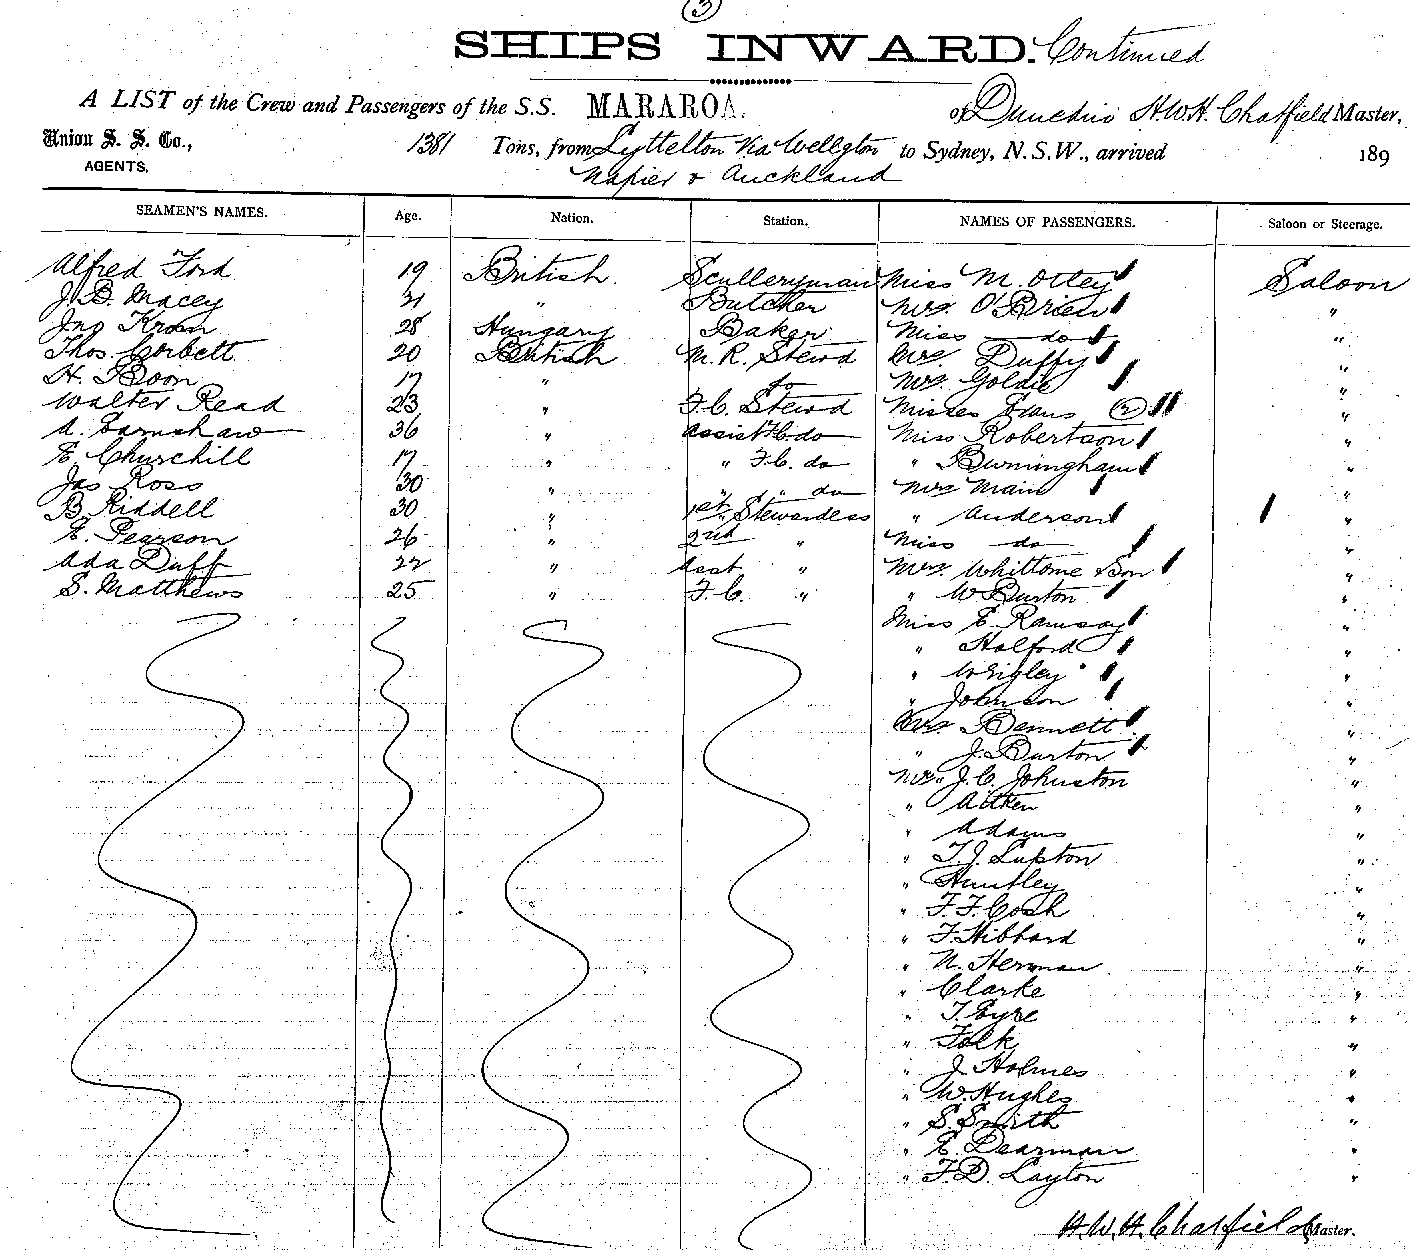 3
SHIPS INWARD. Continued
A LIST of the Crew and Passengers of the S.S. MARAROA. of Dunedin H.W.H. Chatfield Master,
Union S. S. Co., 1381 Tons, from Lyttelton Via Wellgton to Sydney, N.S.W., arrived 189
AGENTS. Napier & Auckland
SEAMEN'S NAMES. Age. Nation. Station. NAMES OF PASSENGERS. Saloon or Steerage.
Alfred Ford 19 British Sculleryman Miss M. Otley Saloon
J. B. Macey 21 " Butcher Mrs. O'Brien "
Jno 28 Hungary Baker Miss do "
Thos. Corbett 20 British M. R. Stewd Mrs. Duffy "
H. Boon 17 " do Mrs. Goldie "
Walter Read 23 " F.C. Stewd Misses Evans (2) "
A. Earnshaw 36 " Assist F.C. do Miss Robertson "
E. Churchill 17 " " F.C. do " Burningham "
Jas Ross 30 " " " do Mrs Main "
B. Riddell 30 " 1st Stewardess " Anderson "
E. Pearson 26 " 2nd " Miss do "
Ada Duff 22 " Asst " Mrs. Whittome & Son "
S. Matthews 25 " F.C. " " W Burton "
Miss E. Ramsay "
" Halford "
" Wrigley "
" Johnson "
Mrs. Bennett "
" J. Burton "
J. C. Johnston "
" Aitken "
" Adams "
" T. J. Lupton "
" Huntley "
" F. F. Cosh "
" F. Hibbard "
" N. Herman "
" Clarke "
" T. Eyre "
" Folk "
" J. Holmes "
" W. Hughes "
" S. Smith "
" E. Dearman "
" F. D. Layton "
H. W. H. Chatfield Master.